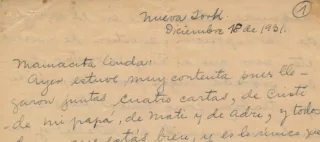 1
Nueva York
Diciembre 18 de 1931.
Mamacita linda:
Ayer estuve muy contenta pues lle-
garon juntas cuatro cartas, de Cristi
- de mi papá, de Mati y de Adri, y todos
que estás bien, y es lo único que